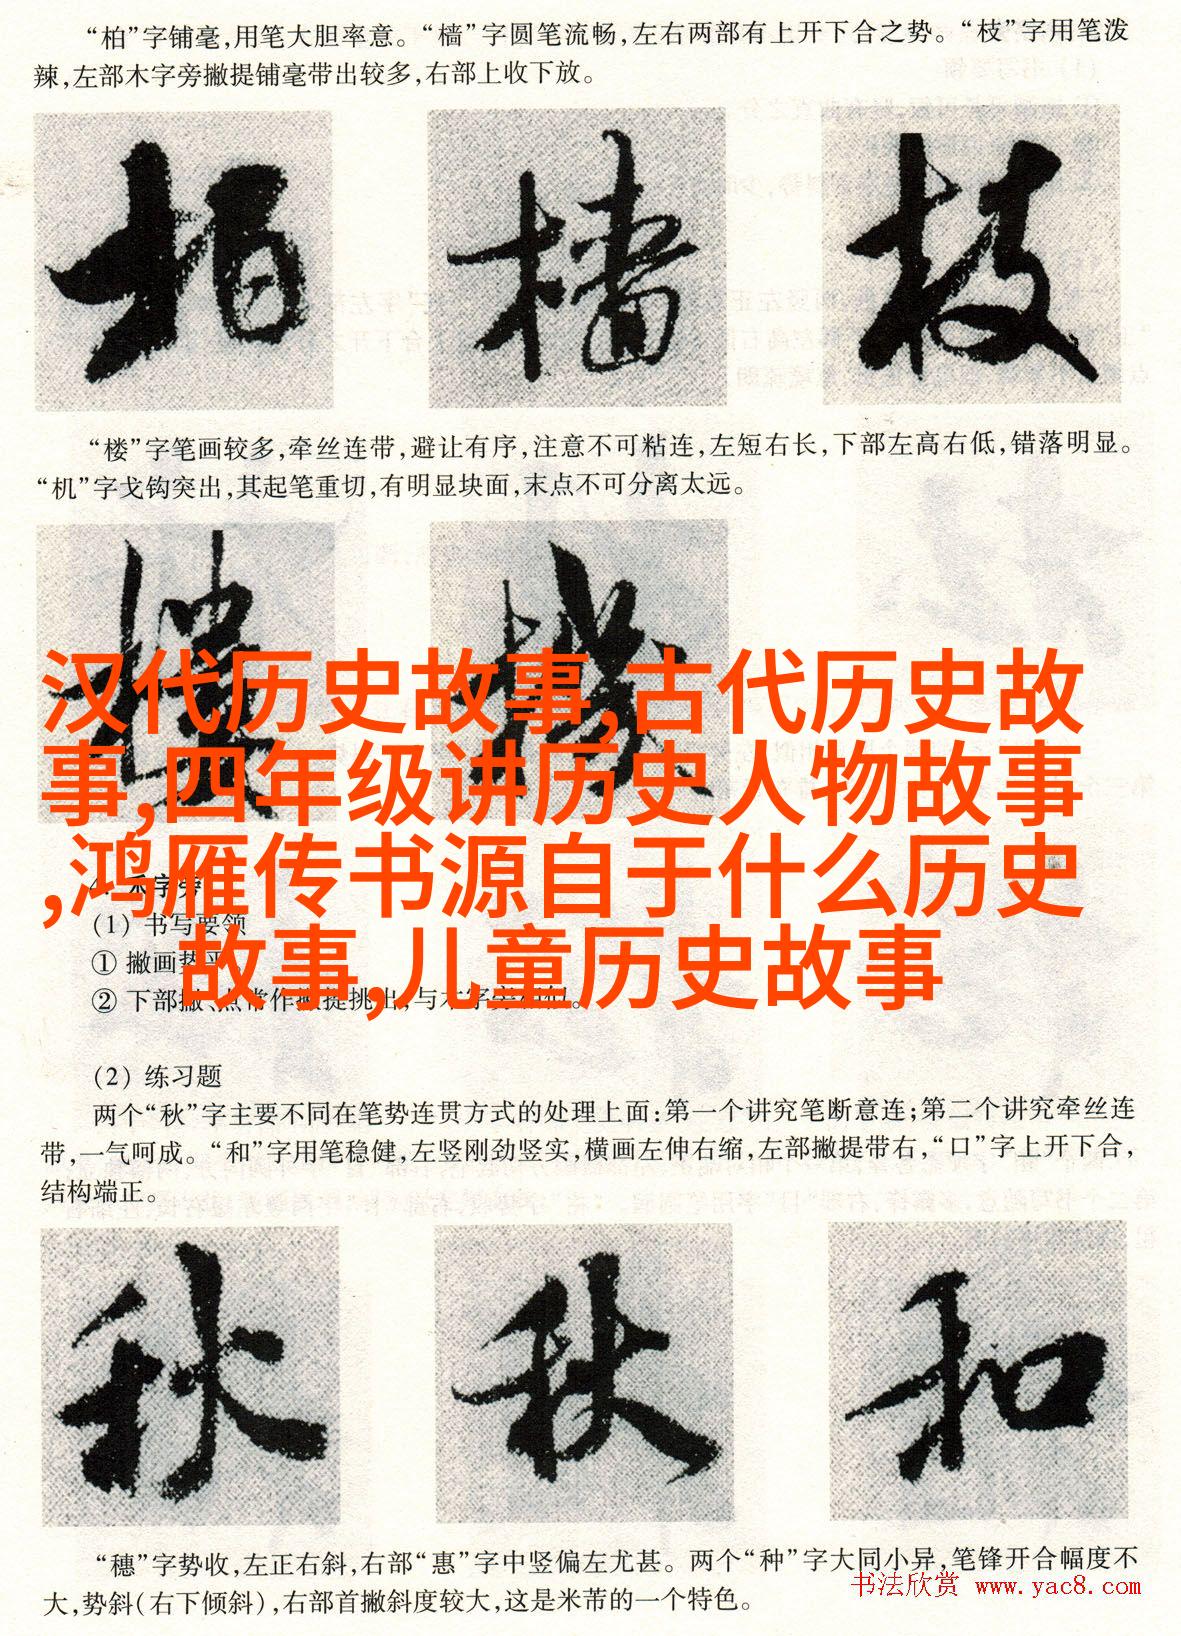 “柏”字铺毫,用笔大胆率意。“樯”字圆笔流畅,左右两部有上开下合之势。“枝”字用笔泼
辣,左部木字旁撇提铺毫带出较多,右部上收下放。
柏 樯 枝
“楼”字笔画较多,牵丝连带,避让有序,注意不可粘连,左短右长,下部左高右低,错落明显。
“机”字戈钩突出,其起笔重切,有明显块面,末点不可分离太远。
汉代历史故事,古代历史故
事,四年级讲历史人物故事
,鸿雁传书源自于什么历史
故事,儿童历史故事
禾字旁
(1) 书写要领
① 撇画势平
② 下部撇、点常作撇提挑出,与木字旁相似。
(2) 练习题
两个“秋”字主要不同在笔势连贯方式的处理上面:第一个讲究笔断意连;第二个讲究牵丝连
带,一气呵成。“和”字用笔稳健,左竖刚劲竖实,横画左伸右缩,左部撇提带右,“口”字上开下合,
结构端正。
秋 秋 和
“穗”字势收,左正右斜,右部“惠”字中竖偏左尤甚。两个“种”字大同小异,笔锋开合幅度不
大,势斜(右下倾斜),右部首撇斜度较大,这是米芾的一个特色。
书法欣赏 www.yac8.com